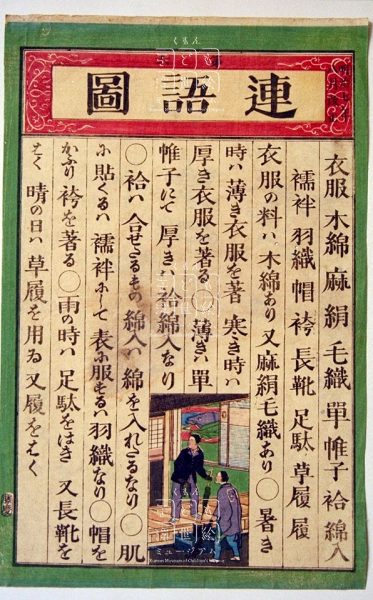 連語圖
衣服 木綿 麻 絹 毛織 單 帷子 袷 綿入
襦袢 羽織 帽 袴 長靴 足駄 草履 履
衣服の料ハ 木綿あり 又麻絹毛織あり 〇 暑き
時ハ 薄き衣服を著 寒き時ハ
厚き衣服を著る 〇 薄きハ 單
帷子にて 厚きハ 袷綿入なり
〇 袷ハ 合せたるもの 綿入ハ 綿を入れたるなり 〇 肌
に貼くるハ 襦袢にして 表に服するハ 羽織なり 〇 帽を
かぶり 袴を著る 〇 雨の時ハ 足駄をはき 又長靴を
はく 晴の日ハ 草履を用ゐ 又履をはく
くもん
子ども
浮世絵
ミュージアム
Kumon Museum of Children's Ukiyo-e